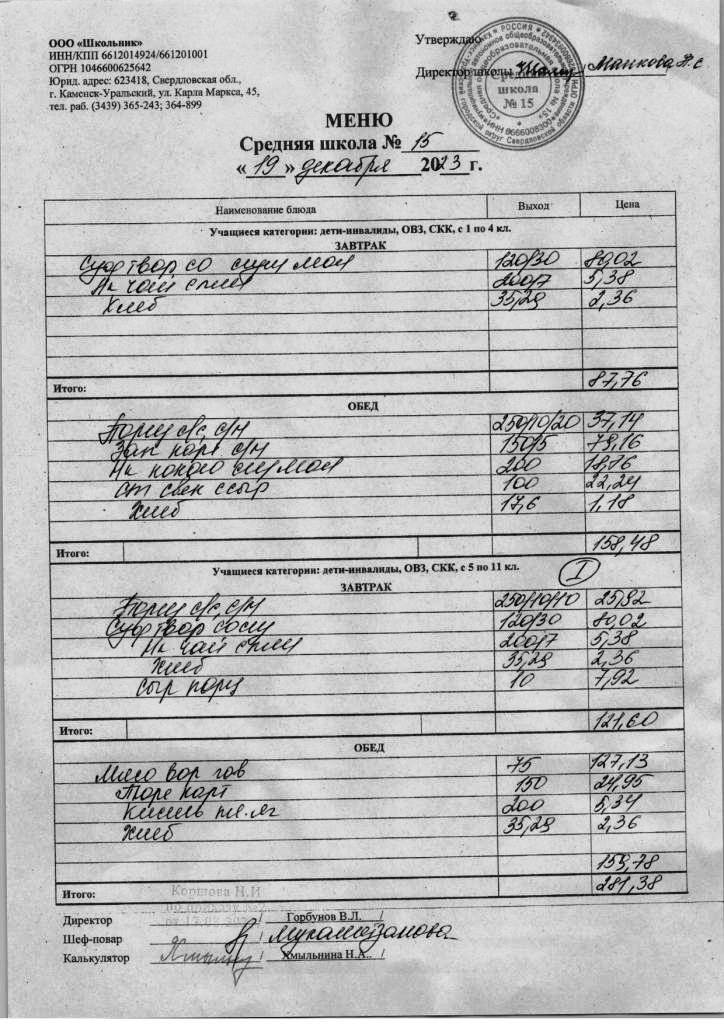 ООО «Школьник»
ИНН/КПП 6612014924/661201001
ОГРН 1046600625642
Юрид. адрес: 623418, Свердловская обл.,
г. Каменск-Уральский, ул. Карла Маркса, 45,
тел. раб. (3439) 365-243; 364-899
Утверждаю
Директор школы
школа
№ 15
МЕНЮ
Средняя школа № 15
« 19 » декабря 2023 г.
Наименование блюда Выход Цена
Учащиеся категории: дети-инвалиды, ОВЗ, СКК, с 1 по 4 кл.
ЗАВТРАК
твор со сгущ мол 120/30 80,02
Нк чай 200/7 5,38
Хлеб 35,29 2,36
Итого: 87,76
ОБЕД
с/с, с/н 250/10/20 37,14
Зап карт с/н 150/5 79,16
Нк какао сгущ мол 200 18,76
От свек ссыр 100 22,24
Хлеб 17,6 1,18
Итого: 158,48
Учащиеся категории: дети-инвалиды, ОВЗ, СКК, с 5 по 11 кл.
I
ЗАВТРАК
с/с, с/н 250/10/10 25,92
твор сосгу 120/30 80,02
Нк чай 200/7 5,38
Хлеб 35,29 2,36
Сыр порц 10 7,92
Итого: 121,60
ОБЕД
Мясо вор гов 75 127,13
Пюре карт 150 24,95
Кисель пл.яг 200 5,34
Хлеб 35,29 2,36
159,78
Итого: 281,38
Коршова Н.И
по приказу №
Директор / Горбунов В.Л. /
Шеф-повар
Калькулятор / Хмыльнина Н.А.. /